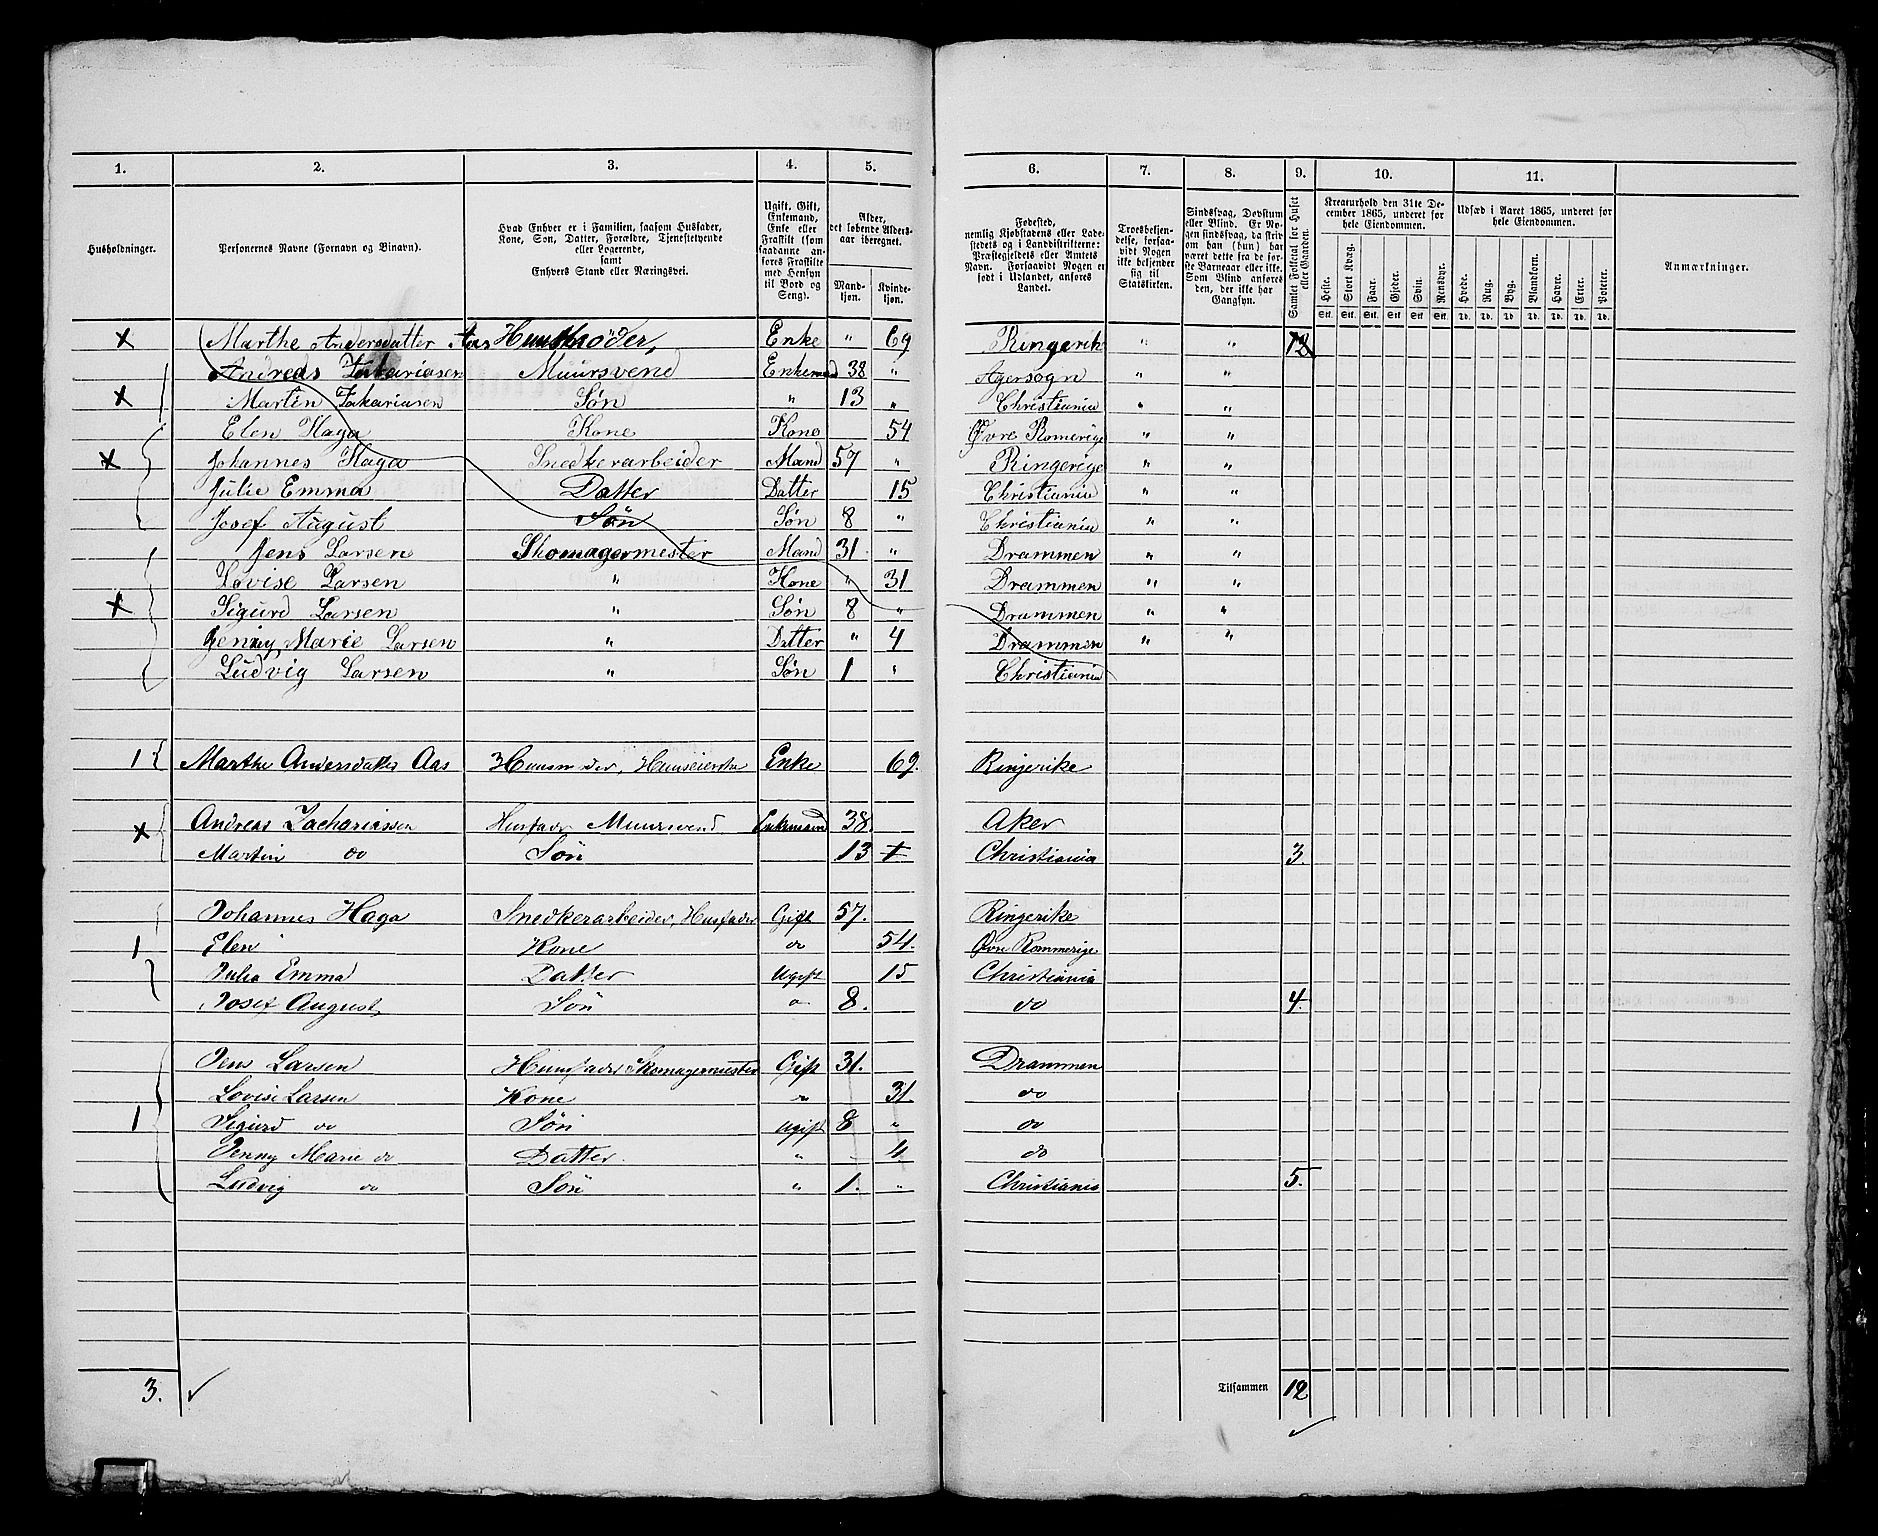 1. 2. 3. 4. 5. 6. 7. 8. 9. 10. 11.
Husholdninger.
Personernes Navne (Fornavn og Binavn).
Hvad Enhver er i Familien, saasom Husfader, Kone, Søn, Datter, Forældre, Tjenestetyende eller Logerende, samt Enhvers Stand eller Næringsvei.
Ugift, Gift, Enkemand, Enke eller Fraskilt (som saadanne anføres Fraskilte med Hensyn til Bord og Seng).
Alder, det løbende Aldersaar iberegnet.
Mandkjøn. Kvindekjøn.
Fødested, nemlig Kjøbstadens eller Ladestedets og i Landdistrikterne: Præstegjeldets eller Amtets Navn. Forsaavidt Nogen er født i Udlandet, anføres Landet.
Troesbekjendelse, forsaavidt Nogen ikke bekjender sig til Statskirken.
Sindssvag, Døvstum eller Blind. Er Nogen sindssvag, da skriv om han (hun) har været dette fra de første Barneaar eller ikke. Som Blind anføres den, der ikke har Gangsyn.
Samlet Folketal for Huset eller Gaarden.
Kreaturhold den 31te December 1865, underet for hele Eiendommen.
Heste. Stort Kvæg. Faar. Gjeder. Svin. Rensdyr.
Stk. Stk. Stk. Stk. Stk. Stk.
Udsæd i Aaret 1865, underet for hele Eiendommen.
Hvede. Rug. Byg. Blandkorn. Havre. Erter. Poteter.
Td. Td. Td. Td. Td. Td. Td.
Anmærkninger.
x Marthe Andersdatter Aas Huusmoder, Enke " 69 Ringerike " " 12
Andreas Zakariasen Muursvend Enkemand 38 " Agersogn " "
x Martin Zakariasen Søn " 13 " Christiania " "
Elen Haga Kone Kone 54 Øvre Romerige " "
x Johannes Haga Snedkerarbeider Mand 57 " Ringerige " "
Julie Emma Datter Datter 15 Christiania " "
Josef August Søn Søn 8 " Christiania " "
Jens Larsen Skomagermester Mand 31 " Drammen " "
Lovise Larsen " Kone " 31 Drammen " "
x Sigurd Larsen " Søn 8 " Drammen " "
Jenny Marie Larsen " Datter " 4 Drammen " "
Ludvig Larsen " Søn 1 " Christiania
1 Marthe Andersdatter Aas Huusmoder, Huuseierske Enke 69. Ringerike
Andreas Zachariassen Husfader Muursvend Enkemand 38. Aker
x Martin do Søn 13 Christiania 3.
Johannes Haga Snedkerarbeider, Husfader Gift 57. Ringerike
1 Elen Kone do 54. Øvre Rommerige
Julia Emma Datter Ugift 15 Christiania
Josef August Søn 8. do 4.
Jens Larsen Huusfader Skomagermester Gift 31. Drammen
Lovise Larsen Kone " 31. do
1 Sigurd do Søn Ugift 8 " do
Jenny Marie do Datter. " 4 do
Ludvig do Søn " 1. " Christiania 5.
3. Tilsammen 12